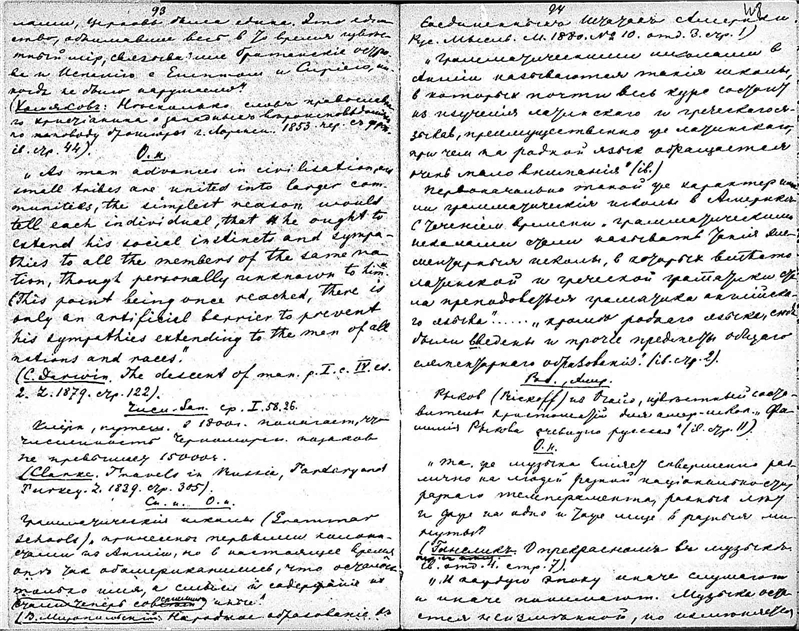 93
была едина. Это един-
ство, обнимавшее весь в то время извест-
ный мир, связывавшее британские остро-
ва и Испанию с Египтом и Сирией, ни-
когда не было нарушаемо"
(Хомяковъ: Несколько словъ православна-
го христианина о западныхъ вероисповеданияхъ
по поводу брошюры г. Лоранси. 1853. пер. съ фр.
ib. стр. 44).
О.н.
"As man advances in civilisation, and
small tribes are united into larger com-
munities, the simplest reason would
tell each individual, that he ought to
extend his social instincts and sympa-
thies to all the members of the same na-
tion, though personally unknown to him.
This point being once reached, there is
only an artificial barrier to prevent
his sympathies extending to the men of all
nations and races."
(C. Darwin. The descent of man. p. I. c. IV. ed.
2. L. 1879. стр. 122).
ср. I. 58, 26.
Кларк, путеш. в 1800 г. полагает, что
численность Черноморск. казаков
не превышает 15000 ч.
(Clarke. Travels in Russia, Tartary and
Turkey. L. 1839. стр. 305).
О.н.
Грамматические школы (Grammar
Schools), принесены первыми колони-
стами из Англии, но в настоящее время
они так обамериканились, что осталось
только имя, а смысл и содержание их
стали теперь совершенно иные."
(В. Народное образование в
94
Соединенныхъ Штатахъ Америки.
Рус. Мысль. М. 1880. № 10. отд. 3. стр. 1)
"Грамматическими школами в
Англии называются такия школы,
в которых почти весь курс состоит
из изучения латинского и греческого я-
зыков, преимущественно же латинского,
при чем на родной язык обращается
очень мало внимания" (ib.)
Первоначально такой же характер име-
ли грамматическия школы в Америке.
С течением времени "грамматическими
школами стали называть такия эле-
ментарныя школы, в которых вместо
латинской и греческой грамматики ста-
ла преподаваться грамматика английска-
го языка"..... "кроме родного языка, сюда
были введены и прочие предметы общаго
элементарнаго образования". (ib. стр. 2).
Рыков (Rickoff) из Огайо, известный соста-
витель христоматий для амер. школ. "Фа-
милия Рыкова очевидно русская" (ib. стр. 11).
О.н.
"Та же музыка влияет совершенно раз-
лично на людей разной национальности,
разнаго темперамента, разных лет
и даже на одно и тоже лицо в разныя ми-
нуты"
(Ганслик. О прекрасном в музыке
отд. 4. стр. 7).
"В каждую эпоху иначе слушают
и иначе понимают. Музыка оста-
ется неизменной, но изменяется